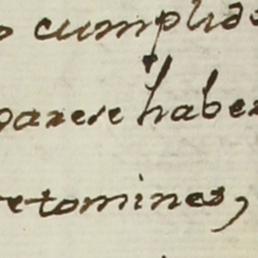 o cumplido
parese haber
retomines,